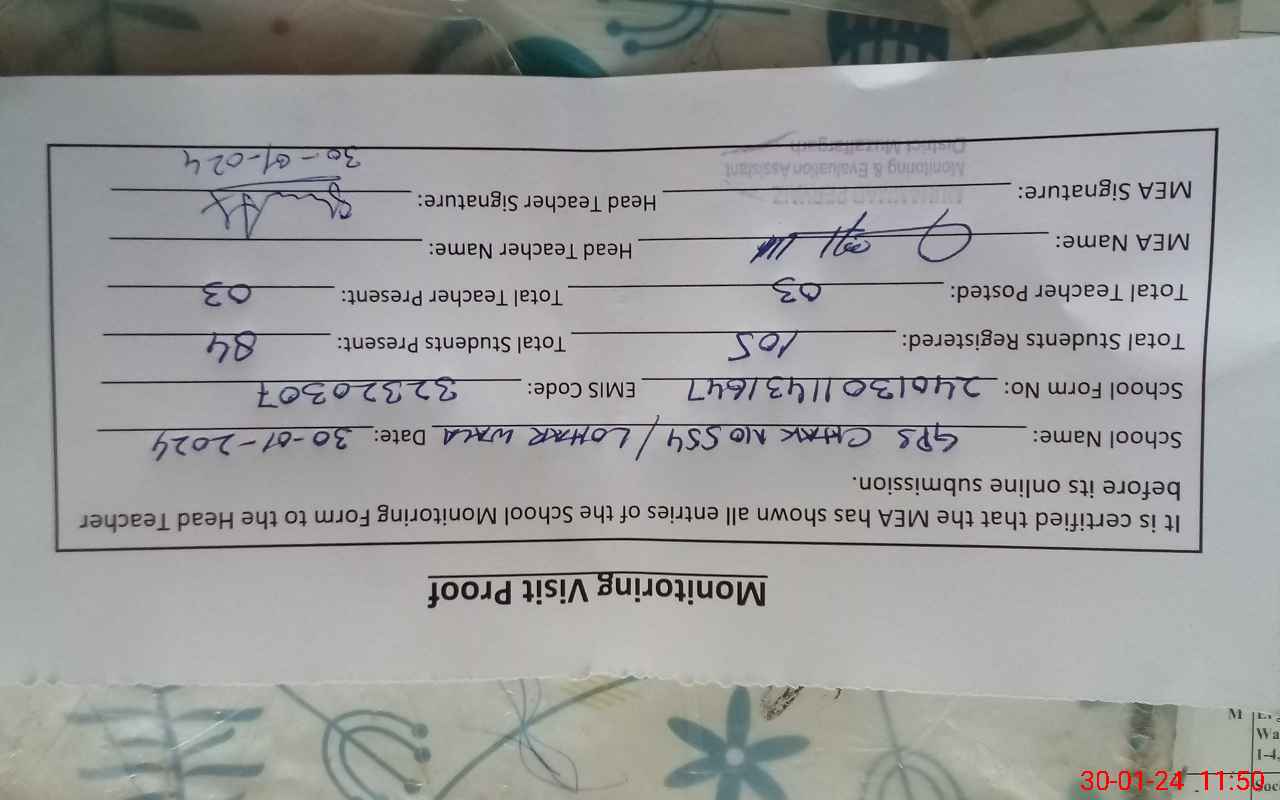 Monitoring Visit Proof
It is certified that the MEA has shown all entries of the School Monitoring Form to the Head Teacher
before its online submission.
School Name: GPS CHAK NO 554 / LOHAR WALA Date: 30-01-2024
School Form No: 24013011431647 EMIS Code: 32320307
Total Students Registered: 105 Total Students Present: 84
Total Teacher Posted: 03 Total Teacher Present: 03
MEA Name: Head Teacher Name:
MEA Signature: Head Teacher Signature:
MUHAMMAD PERVAIZ
Monitoring & Evaluation Assistant
District Muzaffargarh
30-01-024
M
Wa
1-4,
Soc
30-01-24 11:50